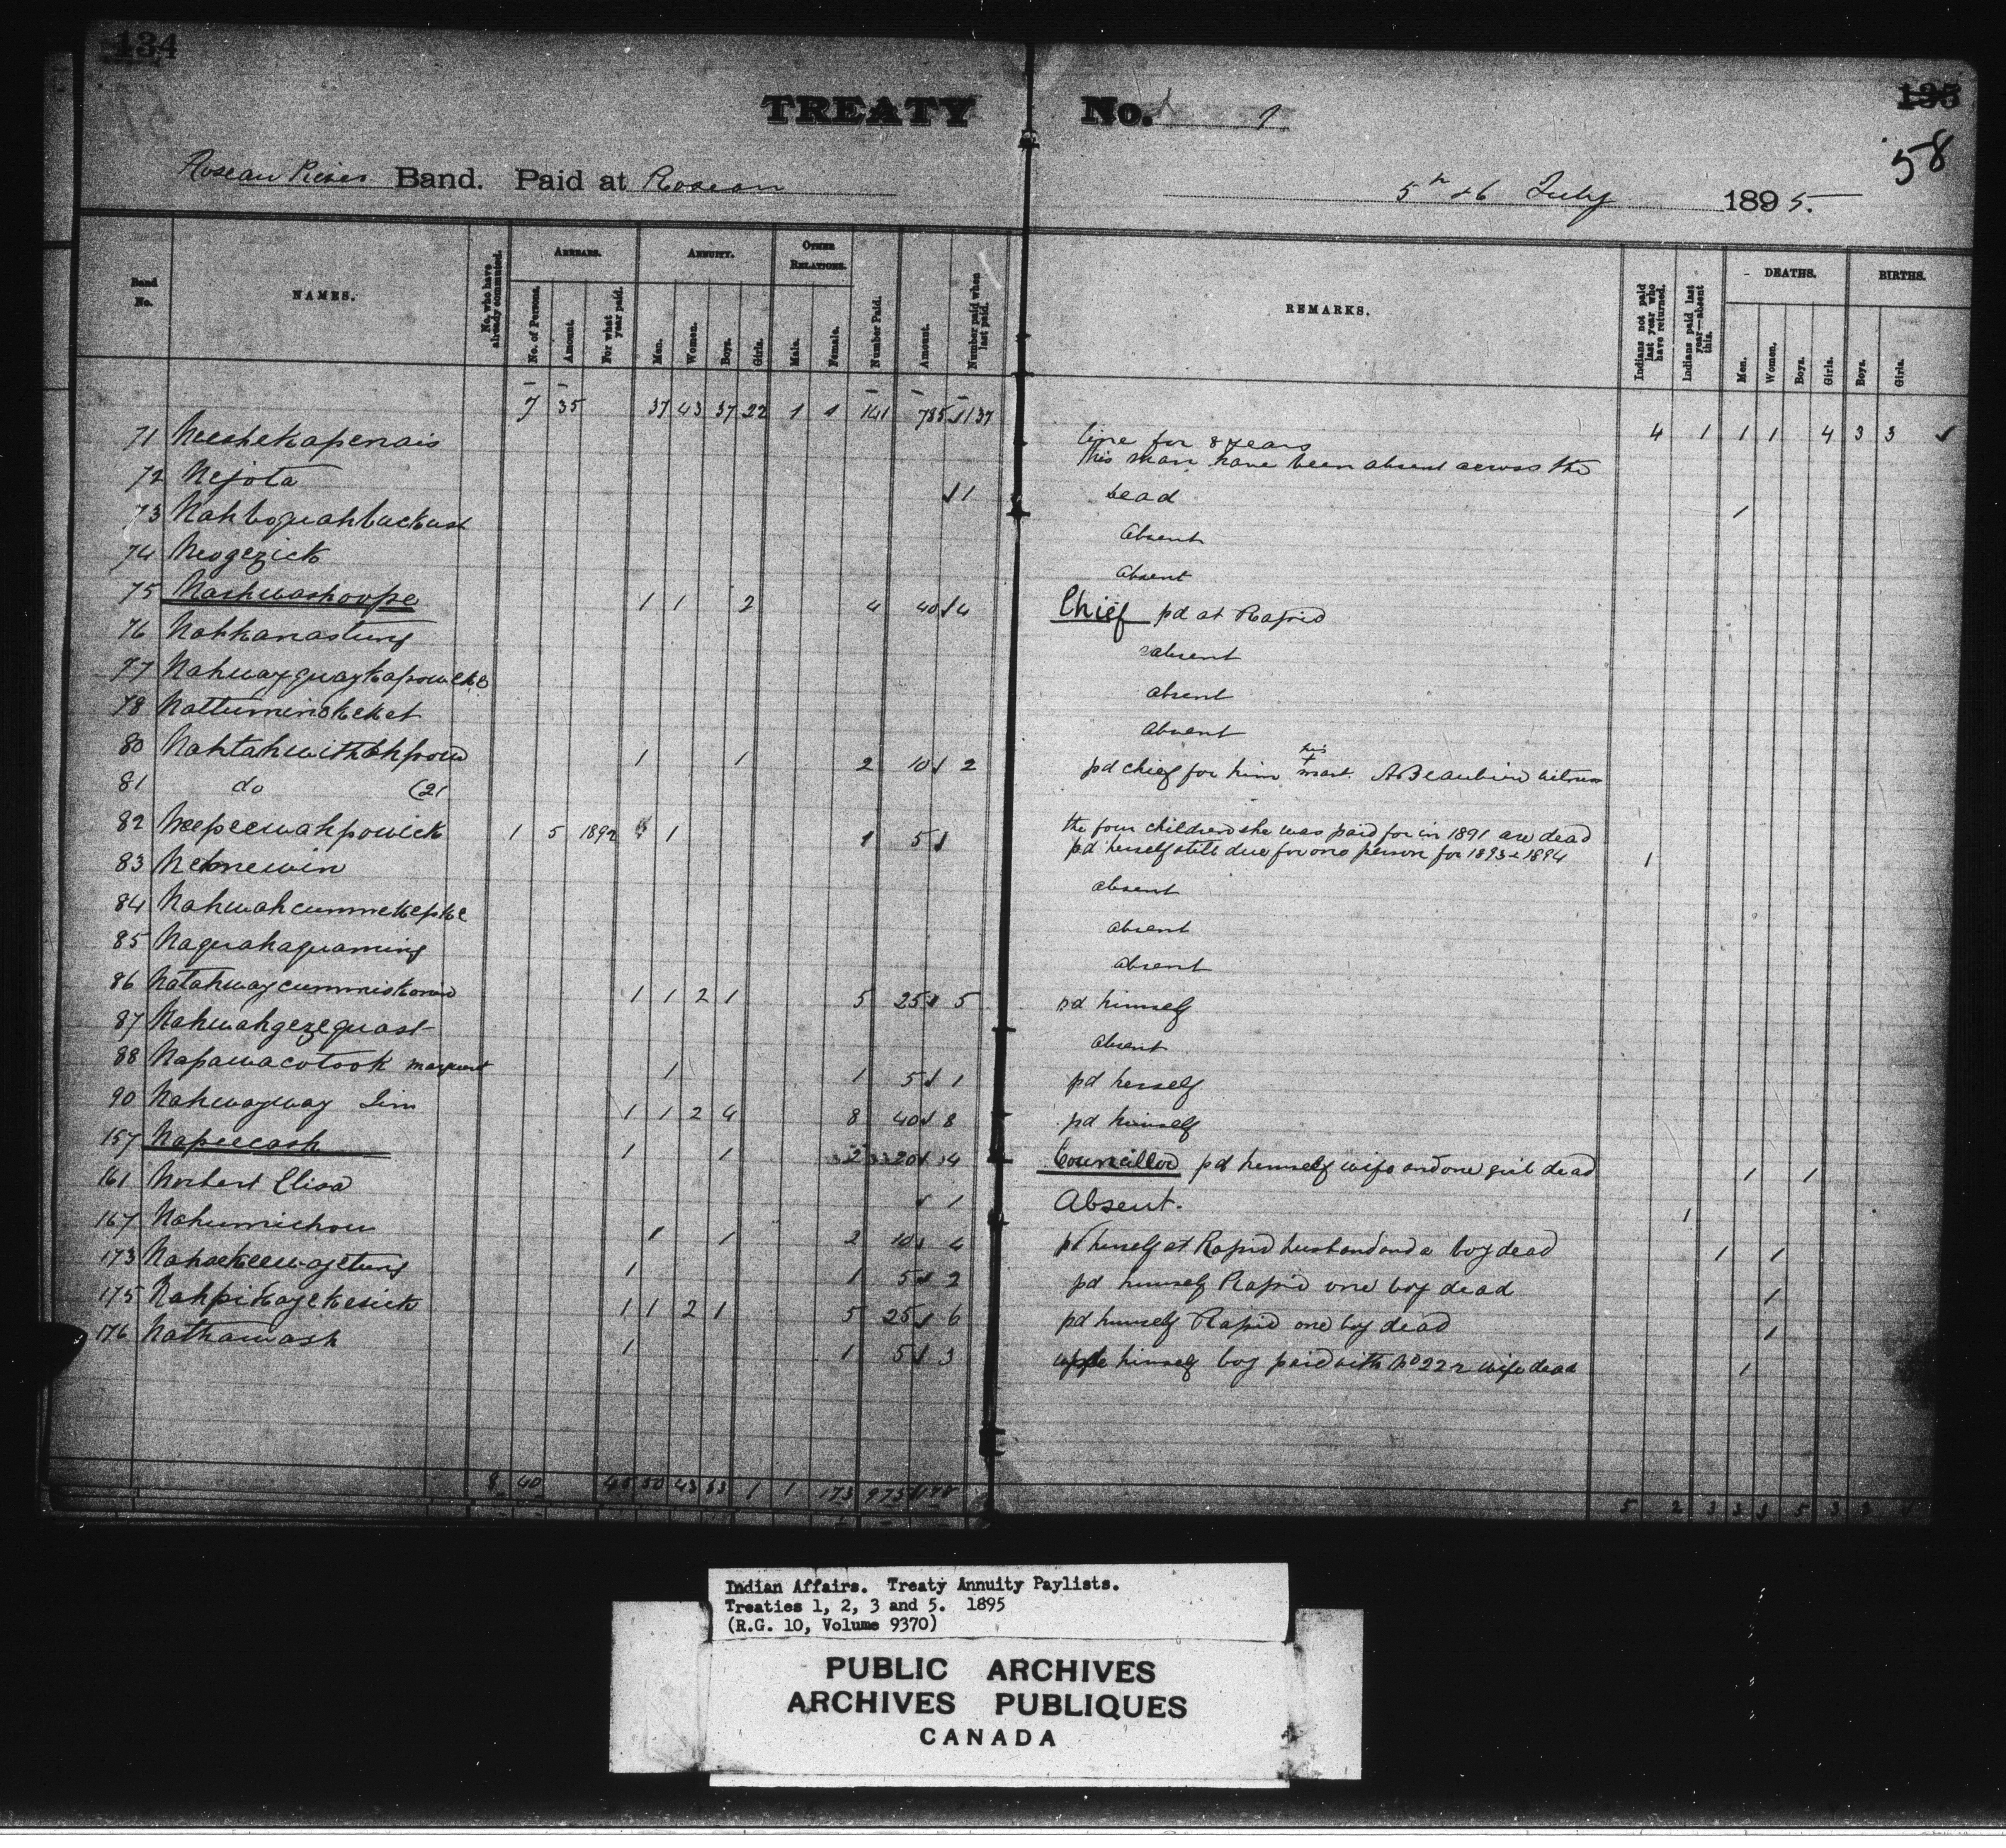 134
135
58
TREATY No. 1
Roseau River Band. Paid at Roseau
5th & 6 July 1895.
Band No.
NAMES.
No. who have already commuted.
ARREARS.
No. of Persons.
Amount.
For what year paid.
ANNUITY.
Men.
Women.
Boys.
Girls.
OTHER RELATIONS.
Male.
Female.
Number Paid.
Amount.
Number paid when last paid.
REMARKS.
Indians not paid last year who have returned.
Indians paid last year—absent this.
DEATHS.
Men.
Women.
Boys.
Girls.
BIRTHS.
Boys.
Girls.
7 35 37 43 37 22 1 1 141 785 √ 137 4 1 1 1 4 3 3 √
71 Neeshekapenais line for 8 years
this man have been absent across the
72 Nejota √ 1 dead 1
73 Nahboquahbuckust Absent
74 Neogezick Absent
75 Nashwashoope 1 1 2 4 40 √ 4 Chief pd at Rapid
76 Nahkanastung absent
77 absent
78 Nattuminokeket Absent
80 1 1 2 10 √ 2 pd chief for him his + mark A Beaubien witness
81 do (2)
82 Neepeewahpowick 1 5 1892 1 1 5 √ the four children she was paid for in 1891 are dead
pd herself still due for one person for 1893 & 1894 1
83 absent
84 Nahwahcummekepke absent
85 Naquahaquaming absent
86 1 1 2 1 5 25 √ 5 pd himself
87 Nahwahgezequast Absent
88 Napawacotook 1 1 5 √ 1 pd herself
90 Nahwayway Jim 1 1 2 4 8 40 √ 8 pd himself
157 Napeecash 1 1 2 20 √ 4 Councillor pd himself wife and one girl dead 1 1
161 Norbert Elisa √ 1 Absent. 1
167 Nahumichou 1 1 2 10 √ 4 pd herself at Rapid husband and a boy dead 1 1
173 1 1 5 √ 2 pd himself Rapid one boy dead 1
175 Nahpikayekesick 1 1 2 1 5 25 √ 6 pd himself Rapid one boy dead 1
176 Nathawash 1 1 5 √ 3 himself boy paid with No 222 wife dead 1
8 40 45 50 43 33 1 1 173 975
Indian Affairs. Treaty Annuity Paylists.
Treaties 1, 2, 3 and 5. 1895
(R.G. 10, Volume 9370)
PUBLIC ARCHIVES
ARCHIVES PUBLIQUES
CANADA